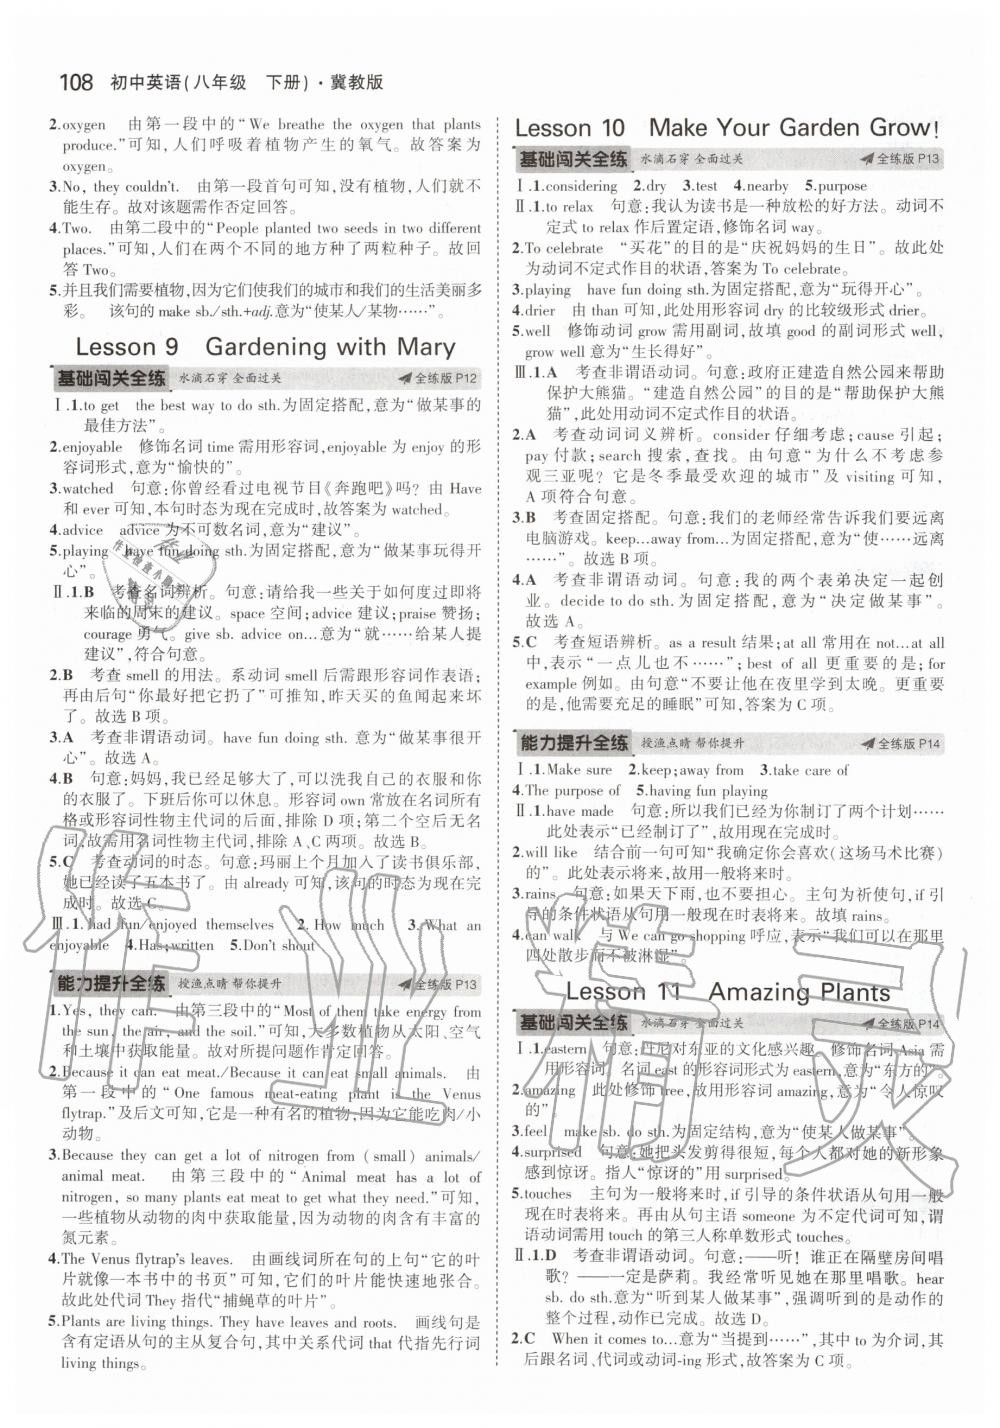 108 初中英语(八年级 下册)·冀教版
2.oxygen 由第一段中的“We breathe the oxygen that plants
produce.”可知，人们呼吸着植物产生的氧气。故答案为
oxygen。
3.No, they couldn't. 由第一段首句可知，没有植物，人们就不
能生存。故对该题需作否定回答。
4.Two. 由第二段中的“People planted two seeds in two different
places.”可知，人们在两个不同的地方种了两粒种子。故回
答Two。
5.并且我们需要植物，因为它们使我们的城市和我们的生活美丽多
彩。 该句的make sb./sth.+adj.意为“使某人/某物……”。
Lesson 9 Gardening with Mary
基础闯关全练 水滴石穿 全面过关 全练版P12
Ⅰ.1.to get the best way to do sth.为固定搭配，意为“做某事的
最佳方法”。
2.enjoyable 修饰名词time需用形容词，enjoyable为enjoy的形
容词形式，意为“愉快的”。
3.watched 句意：你曾经看过电视节目《奔跑吧》吗？由Have
和ever可知，本句时态为现在完成时，故答案为watched。
4.advice advice为不可数名词，意为“建议”。
5.playing have fun doing sth.为固定搭配，意为“做某事玩得开
心”。
Ⅱ.1.B 考查名词辨析。句意：请给我一些关于如何度过即将
来临的周末的建议。space空间；advice建议；praise赞扬；
courage勇气。give sb. advice on…意为“就……给某人提
建议”，符合句意。
2.B 考查smell的用法。系动词smell后需跟形容词作表语；
再由后句“你最好把它扔了”可推知，昨天买的鱼闻起来坏
了。故选B项。
3.A 考查非谓语动词。have fun doing sth. 意为“做某事很开
心”。故选A。
4.B 句意：妈妈，我已经足够大了，可以洗我自己的衣服和你
的衣服了。下班后你可以休息。形容词own常放在名词所有
格或形容词性物主代词的后面，排除D项；第二个空后无名
词，故需用名词性物主代词，排除A、C两项。故选B。
5.C 考查动词的时态。句意：玛丽上个月加入了读书俱乐部，
她已经读了五本书了。由already可知，该句的时态为现在完
成时。故选C。
Ⅲ.1.had fun/enjoyed themselves 2.How much 3.What an
enjoyable 4.Has;written 5.Don't shout
能力提升全练 授渔点睛 帮你提升 全练版P13
1.Yes, they can. 由第三段中的“Most of them take energy from
the sun, the air, and the soil.”可知，大多数植物从太阳、空气
和土壤中获取能量。故对所提问题作肯定回答。
2.Because it can eat meat./Because it can eat small animals. 由
第一段中的“One famous meat-eating plant is the Venus
flytrap.”及后文可知，它是一种有名的植物，因为它能吃肉/小
动物。
3.Because they can get a lot of nitrogen from (small) animals/
animal meat. 由第三段中的“Animal meat has a lot of
nitrogen, so many plants eat meat to get what they need.”可知，
一些植物从动物的肉中获取能量，因为动物的肉含有丰富的
氮元素。
4.The Venus flytrap's leaves. 由画线词所在句的上句“它的叶
片就像一本书中的书页”可知，它们的叶片能快速地张合。
故此处代词They指代“捕蝇草的叶片”。
5.Plants are living things. They have leaves and roots. 画线句是
含有定语从句的主从复合句，其中关系代词that代指先行词
living things。
Lesson 10 Make Your Garden Grow!
基础闯关全练 水滴石穿 全面过关 全练版P13
Ⅰ.1.considering 2.dry 3.test 4.nearby 5.purpose
Ⅱ.1.to relax 句意：我认为读书是一种放松的好方法。动词不
定式to relax作后置定语，修饰名词way。
2.To celebrate “买花”的目的是“庆祝妈妈的生日”。故此处
为动词不定式作目的状语，答案为To celebrate。
3.playing have fun doing sth.为固定搭配，意为“玩得开心”。
4.drier 由than可知，此处用形容词dry的比较级形式drier。
5.well 修饰动词grow需用副词，故填good的副词形式well，
grow well意为“生长得好”。
Ⅲ.1.A 考查非谓语动词。句意：政府正建造自然公园来帮助
保护大熊猫。“建造自然公园”的目的是“帮助保护大熊
猫”，此处用动词不定式作目的状语。
2.A 考查动词词义辨析。consider仔细考虑；cause引起；
pay付款；search搜索，查找。由句意“为什么不考虑参
观三亚呢？它是冬季最受欢迎的城市”及visiting可知，
A项符合句意。
3.B 考查固定搭配。句意：我们的老师经常告诉我们要远离
电脑游戏。keep…away from…为固定搭配，意为“使……远离
……”。故选B项。
4.A 考查非谓语动词。句意：我的两个表弟决定一起创
业。decide to do sth.为固定搭配，意为“决定做某事”。
故选A。
5.C 考查短语辨析。as a result结果；at all常用在not…at all
中，表示“一点儿也不……”；best of all更重要的是；for
example例如。由句意“不要让他在夜里学到太晚。更重要
的是，他需要充足的睡眠”可知，答案为C项。
能力提升全练 授渔点睛 帮你提升 全练版P14
Ⅰ.1.Make sure 2.keep;away from 3.take care of
4.The purpose of 5.having fun playing
Ⅱ.1.have made 句意：所以我们已经为你制订了两个计划……
此处表示“已经制订了”，故用现在完成时。
2.will like 结合前一句可知“我确定你会喜欢(这场马术比赛)
的”。此处表示将来，故用一般将来时。
3.rains 句意：如果天下雨，也不要担心。主句为祈使句，if引
导的条件状语从句用一般现在时表将来。故填rains。
4.can walk 与We can go shopping呼应，表示“我们可以在那里
四处散步而不被淋湿”。
Lesson 11 Amazing Plants
基础闯关全练 水滴石穿 全面过关 全练版P14
Ⅰ.1.eastern 句意：丹尼对东亚的文化感兴趣。修饰名词Asia需
用形容词。名词east的形容词形式为eastern，意为“东方的”。
2.amazing 此处修饰tree，故用形容词amazing，意为“令人惊叹
的”。
3.feel make sb. do sth.为固定结构，意为“使某人做某事”。
4.surprised 句意：她把头发剪得很短，每个人都对她的新形象
感到惊讶。指人“惊讶的”用surprised。
5.touches 主句为一般将来时，if引导的条件状语从句用一般
现在时表将来。再由从句主语someone为不定代词可知，谓
语动词需用touch的第三人称单数形式touches。
Ⅱ.1.D 考查非谓语动词。句意：——听！谁正在隔壁房间唱
歌？——一定是萨莉。我经常听见她在那里唱歌。hear
sb. do sth.意为“听到某人做某事”，强调听到的是动作的
整个过程，动作已完成。故选D。
2.C When it comes to…意为“当提到……”，其中to为介词，其
后跟名词、代词或动词-ing形式，故答案为C项。
作业精灵